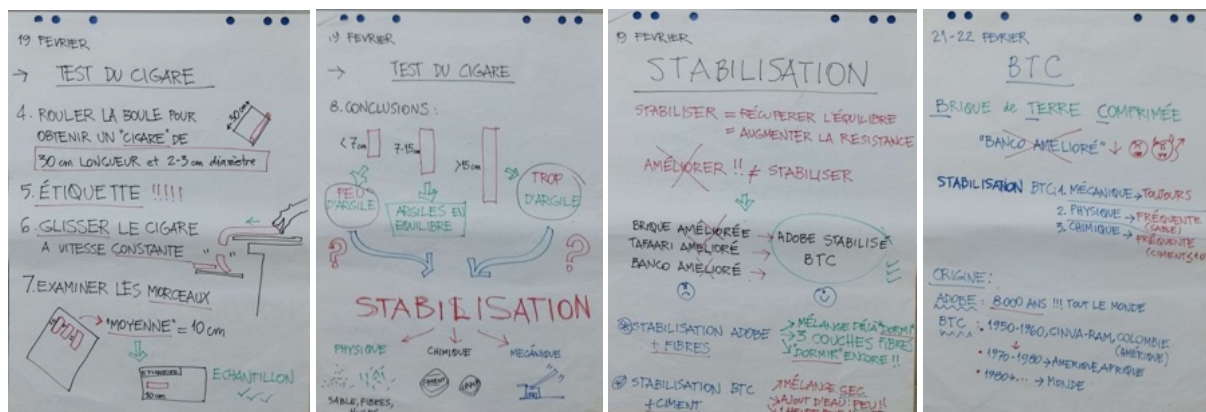 19 FEVRIER
→ TEST DU CIGARE
4. ROULER LA BOULE POUR
OBTENIR UN "CIGARE" DE
30 cm
30 cm LONGUEUR et 2-3 cm diamètre
5. ÉTIQUETTE !!!!!
6. GLISSER LE CIGARE
A VITESSE CONSTANTE
7. EXAMINER LES MORCEAUX
"MOYENNE" = 10 cm
ETIQUETTE
10 cm
ECHANTILLON
19 FEVRIER
→ TEST DU CIGARE
8. CONCLUSIONS :
< 7cm
7-15cm
>15cm
PEU
D'ARGILE
ARGILES EN
EQUILIBRE
TROP
D'ARGILE
?
?
STABILISATION
PHYSIQUE
CHIMIQUE
MECANIQUE
CIMENT
SABLE, FIBRES,
19 FEVRIER
STABILISATION
STABILISER = RÉCUPERER L'ÉQUILIBRE
= AUGMENTER LA RESISTANCE
AMÉLIORER !! ≠ STABILISER
BRIQUE AMÉLIORÉE →
TAFAARI AMELIORÉ →
BANCO AMÉLIORÉ →
ADOBE STABILISÉ
BTC
STABILISATION ADOBE
+ FIBRES
→ MÉLANGE DÉJÀ "DORMI"
→ 3 COUCHES FIBRES
"DORMIR" ENCORE !!
STABILISATION BTC
+ CIMENT
MÉLANGE SEC
→ AJOUT D'EAU: PEU !!
21-22 FEVRIER
BTC
BRIQUE de TERRE COMPRIMÉE
"BANCO AMÉLIORÉ"
STABILISATION BTC: 1. MÉCANIQUE → TOUJOURS
2. PHYSIQUE → FRÉQUENTE
(SABLE)
3. CHIMIQUE → FRÉQUENTE
ORIGINE :
ADOBE : 8000 ANS !!! TOUT LE MONDE
BTC : • 1950-1960, CINVA-RAM, COLOMBIE
(AMÉRIQUE)
• 1970-1980 → AMERIQUE, AFRIQUE
• 1980 → ... → MONDE